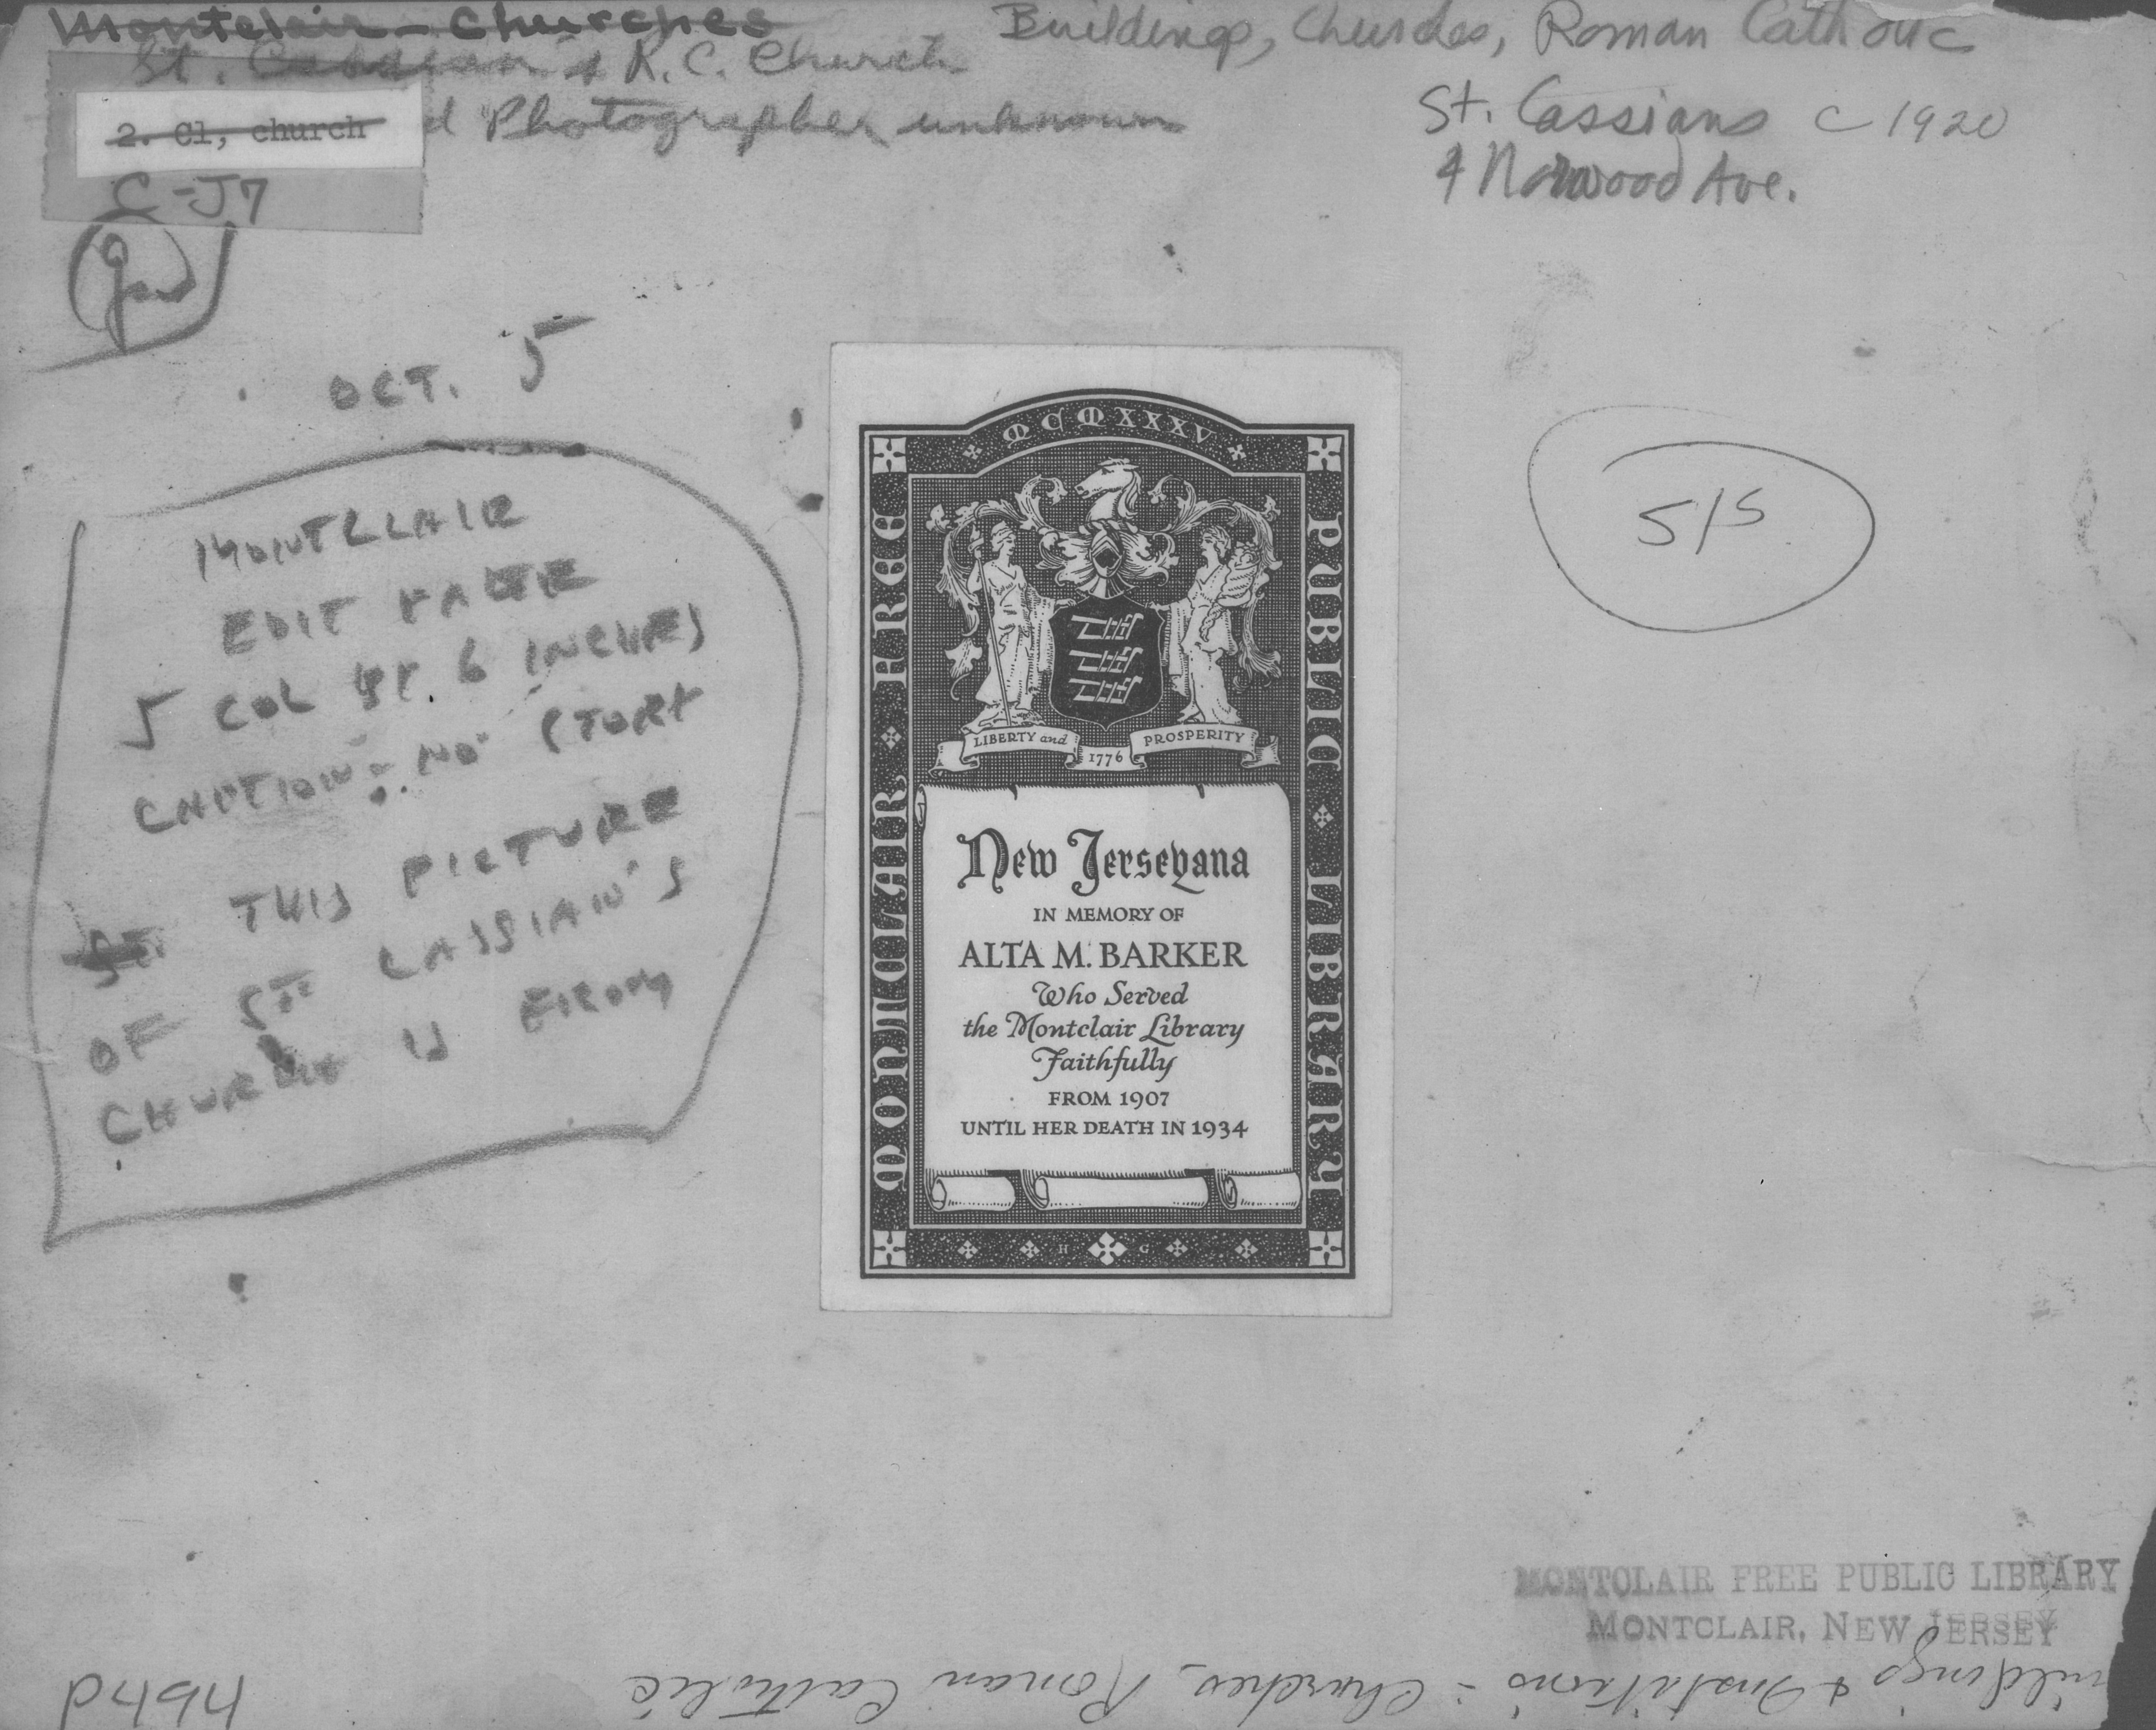 Montclair - Churches
St. Cassian's R.C. Church
d Photographer unknown
2. Cl, church
C-J7
Buildings, Churches, Roman Catholic
St. Cassians c 1920
4 Norwood Ave.
OCT. 5
MONTCLAIR
EDIT PAGE
5 COL BY 6 INCHES
CAPTION - NO STORY
ST. THIS PICTURE
OF ST CASSIAN'S
CHURCH IS FROM
5/5
MCMXXXV
MONTCLAIR FREE
PUBLIC LIBRARY
LIBERTY and
1776
PROSPERITY
New Jerseyana
IN MEMORY OF
ALTA M. BARKER
Who Served
the Montclair Library
Faithfully
FROM 1907
UNTIL HER DEATH IN 1934
H G
MONTCLAIR FREE PUBLIC LIBRARY
MONTCLAIR, NEW JERSEY
uildings & Institutions - Churches, Roman Catholic